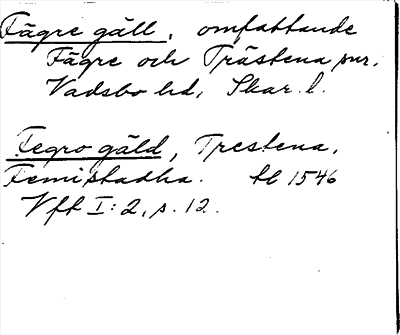 Fägre gäll, omfattande
Fägre och Trästena snr,
Vadsbo hd, Skar. l.
Fegro gäld, Trestena,
Femistadha. tl 1546
Vft I:2, s. 12.